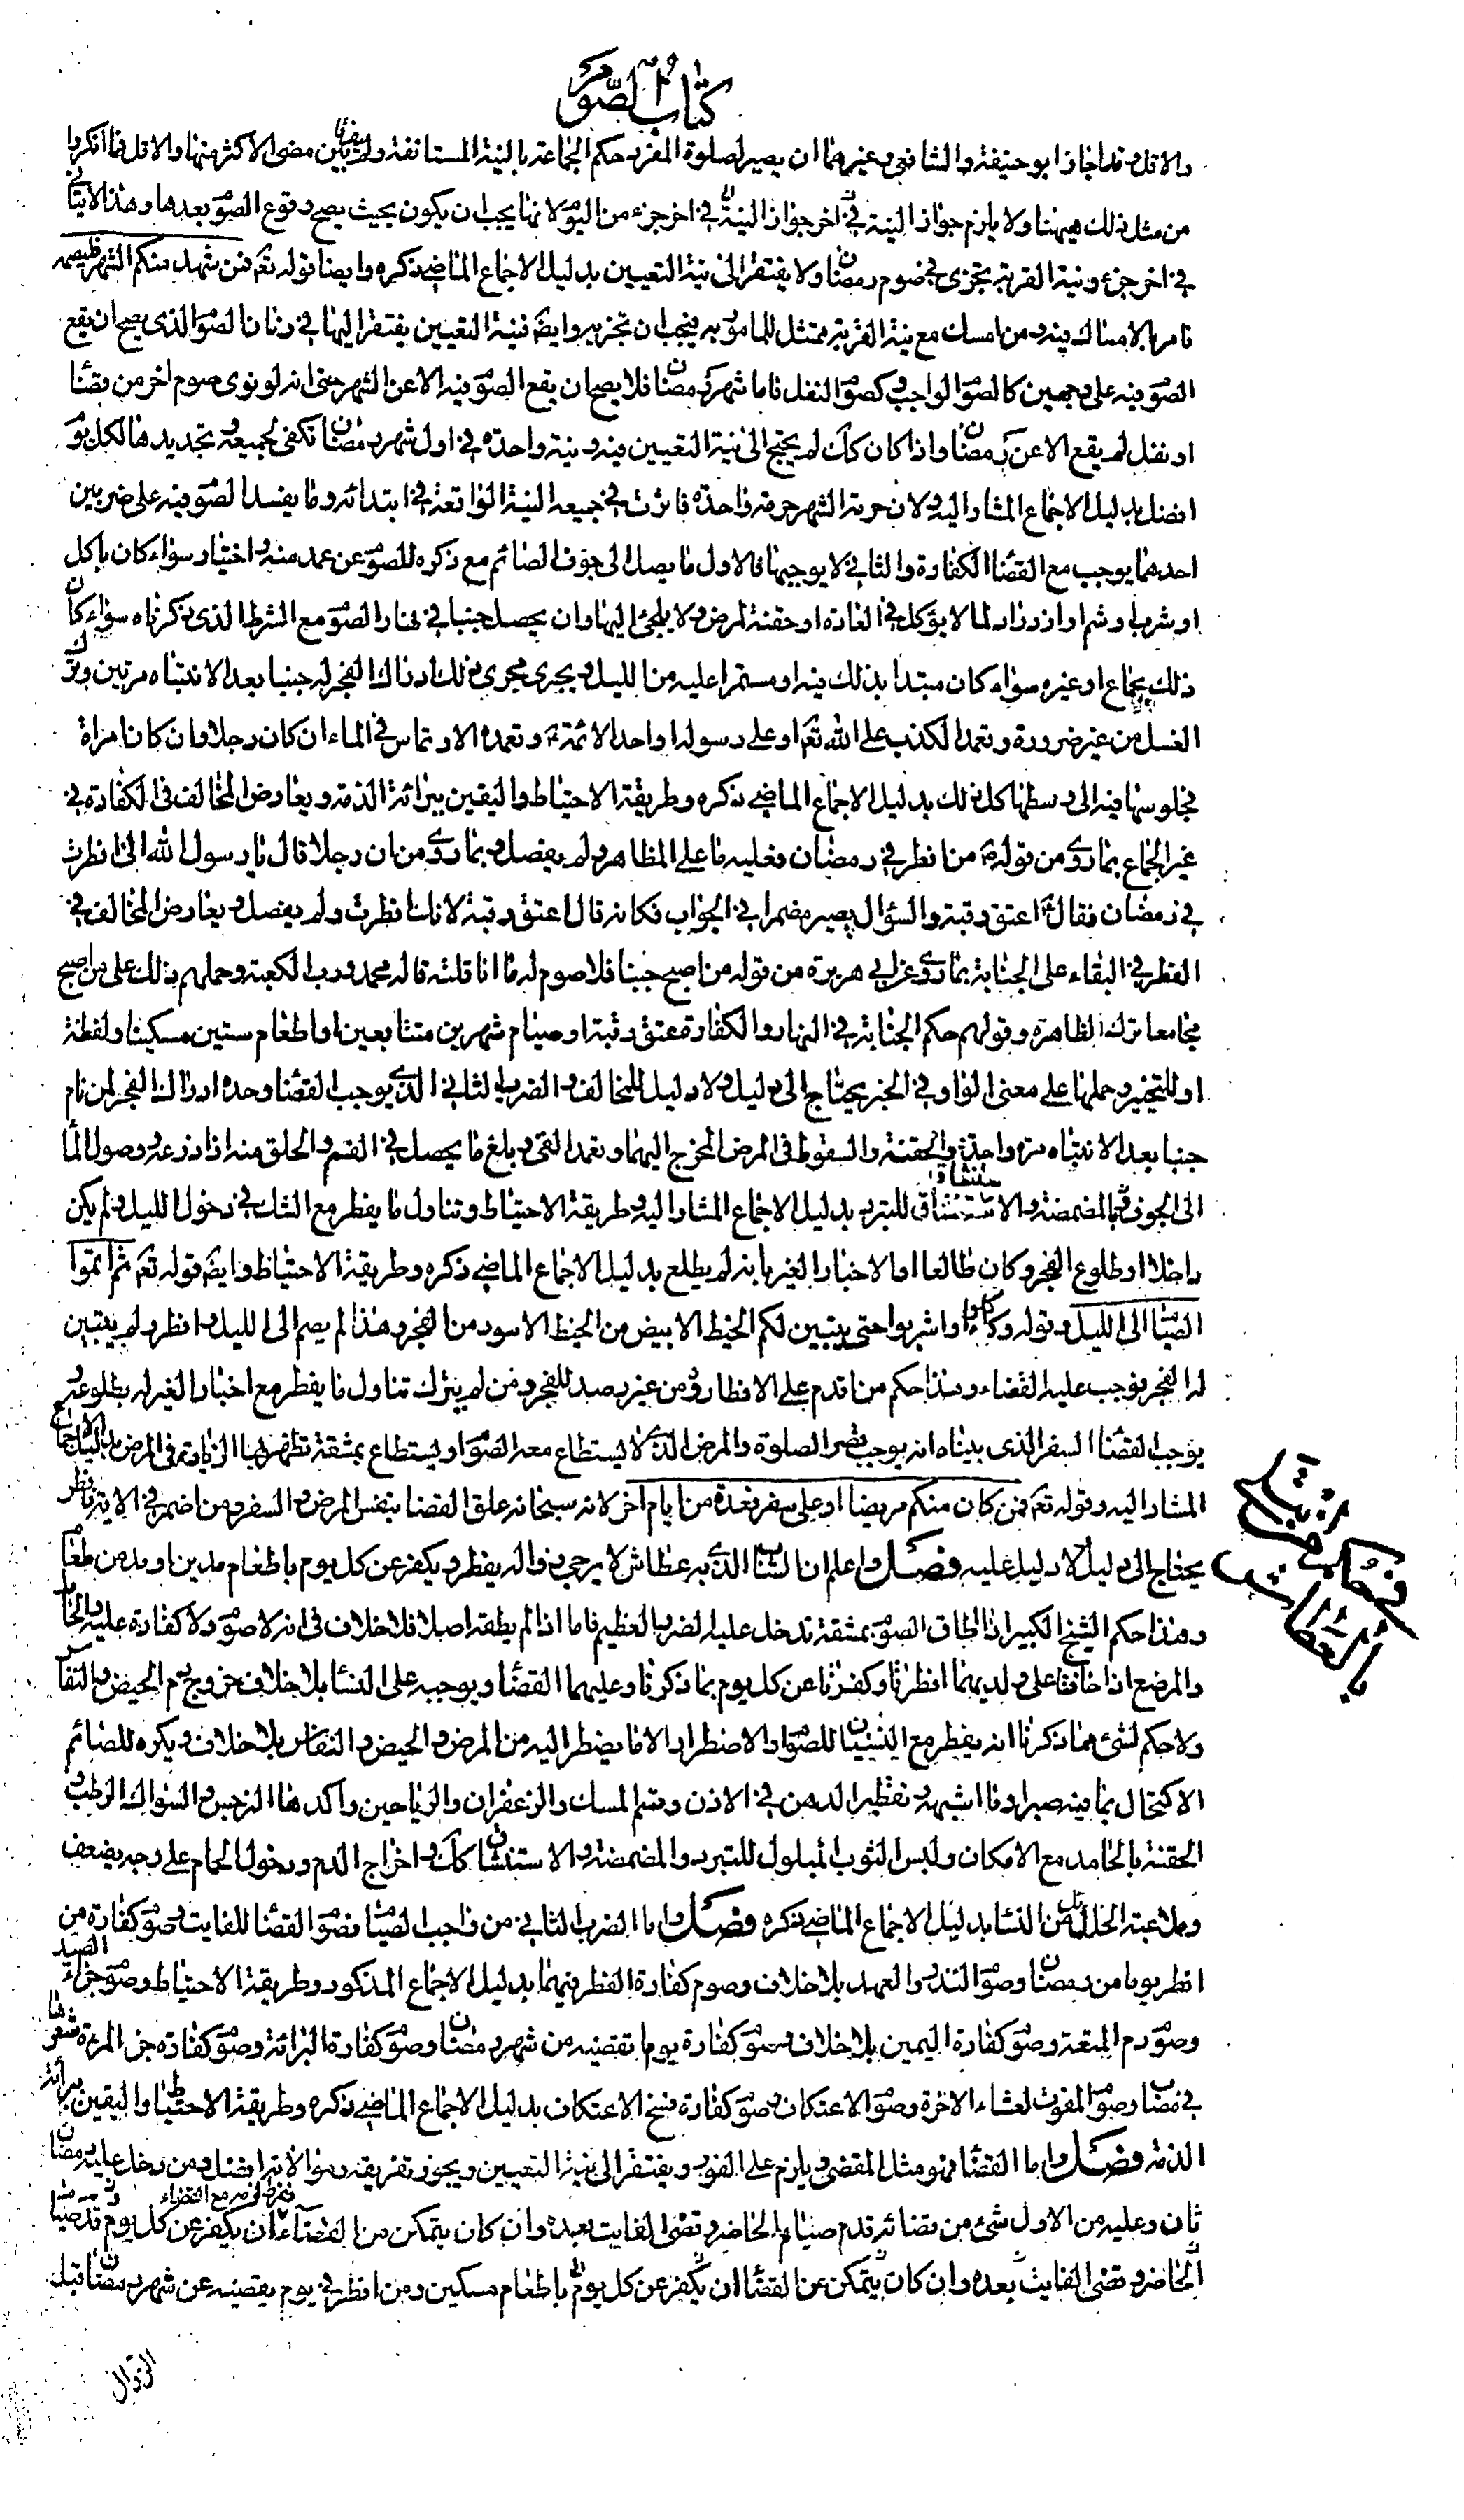 كتاب الصوم
والاقل وقد اجاز ابو حنيفة والشافعي وغيرهما ان يصير لصلوة المفرد حكم الجماعة بالنية المستانفة وان مضى الاكثر منها والاقل فما انكروا
من مثل ذلك هيهنا ولا يلزم جواز النية في اخر جزء من اليوم لانها يجب ان يكون بحيث يصح وقوع الصوم بعدها وهذا لا يتاتى
في اخر جزء ونية القربة تجزى في صوم رمضان ولا يفتقر الى نية التعيين بدليل الاجماع الماضي ذكره وايضا قوله تع فمن شهد منكم الشهر فليصمه
فامر بالامساك فيه ومن امسك مع نية القربة ممتثل للمامور به فيجب ان تجزيه وايضا فنية التعيين يفتقر اليها في زمان الصوم الذي يصح ان يقع
الصوم فيه على وجهين كالصوم الواجب وكصوم النفل فاما شهر رمضان فلا يصح ان يقع الصوم فيه الا عن الشهر حتى انه لو نوى صوم اخر من قضاء
او نفل لم يقع الا عن رمضان واذا كان كك لم يحتج الى نية التعيين فيه ونية واحدة في اول شهر رمضان تكفى لجميعه وتجديدها لكل يوم
افضل بدليل الاجماع المشار اليه ولان حرمة الشهر حرمة واحدة فاثرت في جميعه النية الواقعة في ابتدائه وما يفسد الصوم فيه على ضربين
احدهما يوجب مع القضاء الكفارة والثاني لا يوجبها فالاول ما يصل الى جوف الصائم مع ذكره للصوم عن عمد منه واختيار سواء كان باكل
او شرب او شم او ازدراد لما لا يؤكل في العادة او حقنة لمرض ولا يلجئ اليها وان يحصل جنبا في نهار الصوم مع الشرط الذي ذكرناه سواء كان
ذلك بجماع او غيره سواء كان مبتدا بذلك فيه او مستمرا عليه من الليل ويجرى مجرى ذلك ادراك الفجر له جنبا بعد الانتباه مرتين وترك
الغسل من غير ضرورة وتعمد الكذب على الله تع او على رسوله او احد الائمة ع وتعمده الارتماس في الماء ان كان رجلا وان كان امراة
فجلوسها فيه الى وسطها كل ذلك بدليل الاجماع الماضي ذكره وطريقة الاحتياط واليقين ببرائة الذمة ويعارض المخالف في الكفارة في
غير الجماع بما روى من قوله ع من افطر في رمضان فعليه ما على المظاهر ولم يفصل وبما روى من ان رجلا قال يا رسول الله انى افطرت
في رمضان فقال ع اعتق رقبة والسؤال يصير مضمرا في الجواب فكانه قال اعتق رقبة لانك افطرت ولم يفصل ويعارض المخالف في
الفطر في البقاء على الجنابة بما روى عن ابي هريرة من قوله من اصبح جنبا فلا صوم له ما انا قلته قاله محمد ورب الكعبة وحملهم ذلك على من اصبح
مجامعا ترك الظاهر وقولهم حكم الجنابة في النهار والكفارة عتق رقبة او صيام شهرين متتابعين او اطعام ستين مسكينا ولفظة
او للتخيير وحملها على معنى الواو في الخبر يحتاج الى دليل ولا دليل للمخالف والضرب الثاني الذي يوجب القضاء وحده ادراك الفجر لمن نام
جنبا بعد الانتباه مرة واحدة والحقنة والسقوط في المرض المخرج اليهما وتعمد القى وبلغ ما يحصل في الفم والحلق منه اذا ذرعه ووصول الماء
الى الجوف في المضمضة والاستنشاق للتبرد بدليل الاجماع المشار اليه وطريقة الاحتياط وتناول ما يفطر مع الشك في دخول الليل ولم يكن
داخلا او طلوع الفجر وكان طالعا او الاخبار الغير بانه لم يطلع بدليل الاجماع الماضي ذكره وطريقة الاحتياط وايض قوله تع ثم اتموا
الصيام الى الليل وقوله وكلوا واشربوا حتى يتبين لكم الخيط الابيض من الخيط الاسود من الفجر وهذا لم يصم الى الليل وافطر ولم يتبين
له الفجر فوجب عليه القضاء وهذا حكم من اقدم على الافطار ومن غير رصد للفجر ومن لم يترك تناول ما يفطر مع اخبار الغير له بطلوعه و
يوجب القضاء السفر الذي بيناه انه يوجب قصر الصلوة والمرض الذي لا يستطاع معه الصوم او يستطاع بمشقة تظهر بها الزيادة في المرض بدليل الاجماع
المشار اليه وقوله تع فمن كان منكم مريضا او على سفر فعدة من ايام اخر لانه سبحانه علق القضا بنفس المرض والسفر ومن اضمر في الاية فافطر
يحتاج الى دليل ولا دليل عليه فصل واعلم ان الشاب الذي به عطاش لا يرجى زواله يفطر ويكفر عن كل يوم باطعام مدين او مد من طعام
وهذا حكم الشيخ الكبير اذا اطاق الصوم بمشقة تدخل عليه الضرب العظيم فاما اذا لم يطقه اصلا فلا خلاف في انه لا صوم ولا كفارة عليه والحامل
والمرضع اذا خافتا على ولديهما افطرتا وكفرتا عن كل يوم بما ذكرنا وعليهما القضاء ويوجبه على النساء بلا خلاف خروج دم الحيض والنفاس
ولا حكم لشئ مما ذكرنا انه يفطر مع النسيان للصوم او الاضطرار الا ما يضطر اليه من المرض والحيض والنفاس بلا خلاف ويكره للصائم
الاكتحال بما فيه صبر او ما اشبهه وتقطير الدهن في الاذن وشم المسك والزعفران والرياحين واكدها النرجس والسواك الرطب و
الحقنة بالجامد مع الامكان ولبس الثوب المبلول للتبرد والمضمضة والاستنشاق كك واخراج الدم ودخول الحمام على وجه يضعف
وملاعبة الحلائل من النساء بدليل الاجماع الماضي ذكره فصل واما الضرب الثاني من واجب الصيام فصوم القضاء للفايت وصوم كفارة من
افطر يوما من رمضان وصوم النذر والعهد بلا خلاف وصوم كفارة الفطر فيهما بدليل الاجماع المذكور وطريقة الاحتياط وصوم جزاء الصيد
وصوم دم المتعة وصوم كفارة اليمين بلا خلاف وصوم كفارة يوم تقضيه من شهر رمضان وصوم كفارة البرائة وصوم كفارة جز المرءة شعرها
في مصاب وصوم المفوت لعشاء الاخرة وصوم الاعتكاف وصوم كفارة فسخ الاعتكاف بدليل الاجماع الماضي ذكره وطريقة الاحتياط واليقين ببرائة
الذمة فصل واما القضاء فهو مثل المقضى ويلزم على الفور ويفتقر الى نية التعيين ويجوز تفريقه وموالاته افضل ومن دخل عليه رمضان
ثان وعليه من الاول شئ من قضائه قدم صيام الحاضر وقضى الفايت بعده وان كان يتمكن من القضاء ان يكفر عن كل يوم
الحاضر وقضى الفايت بعده وان كان يتمكن عن القضاء ان يكفر عن كل يوم باطعام مسكين ومن افطر في يوم يقضيه عن شهر رمضان قبل
الزوال